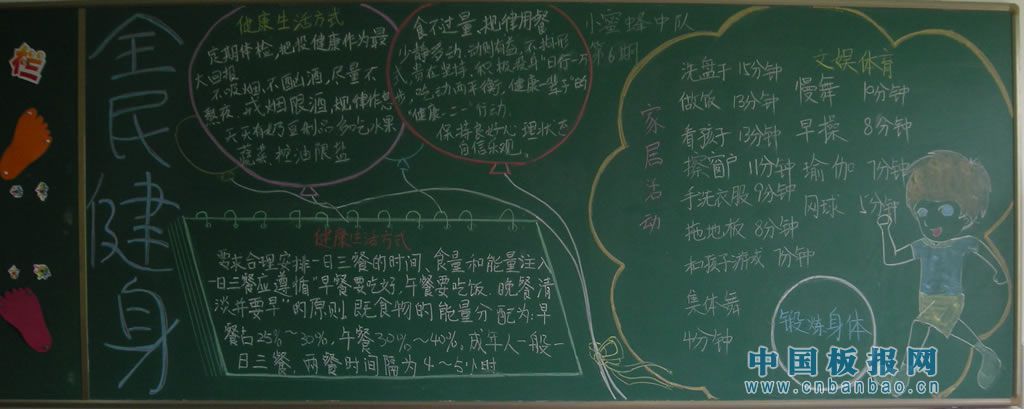 栏
全民健身
健康生活方式
定期体检,把投健康作为最
大回报
不吸烟,不酗酒,尽量不
熬夜,戒烟限酒,规律作息
天天有奶豆制品多吃水果
蔬菜,控油限盐
食不过量,规律用餐
少静多动,动则有益,不拘形
式,贵在坚持,积极投身"日行一万
步,吃动两平衡,健康一辈子"的
"健康一二一"行动.
保持良好心理状态
自信乐观。
小蜜蜂中队
第6期
健康生活方式
要求合理安排一日三餐的时间、食量和能量注入
一日三餐应遵循"早餐要吃好,午餐要吃饭 晚餐清
淡并要早"的原则 既食物的能量分配为:早
餐占25%~30%,午餐30%~40%,成年人一般一
日三餐,两餐时间隔为4~5小时
家居活动
洗盘子 15分钟
做饭 13分钟
看孩子 13分钟
擦窗户 11分钟
手洗衣服 9分钟
拖地板 8分钟
和孩子游戏 7分钟
集体舞
4分钟
文娱体育
慢舞 19分钟
早操 8分钟
瑜伽 7分钟
网球 5分钟
锻炼身体
中国板报网
www.cnbanbao.cn